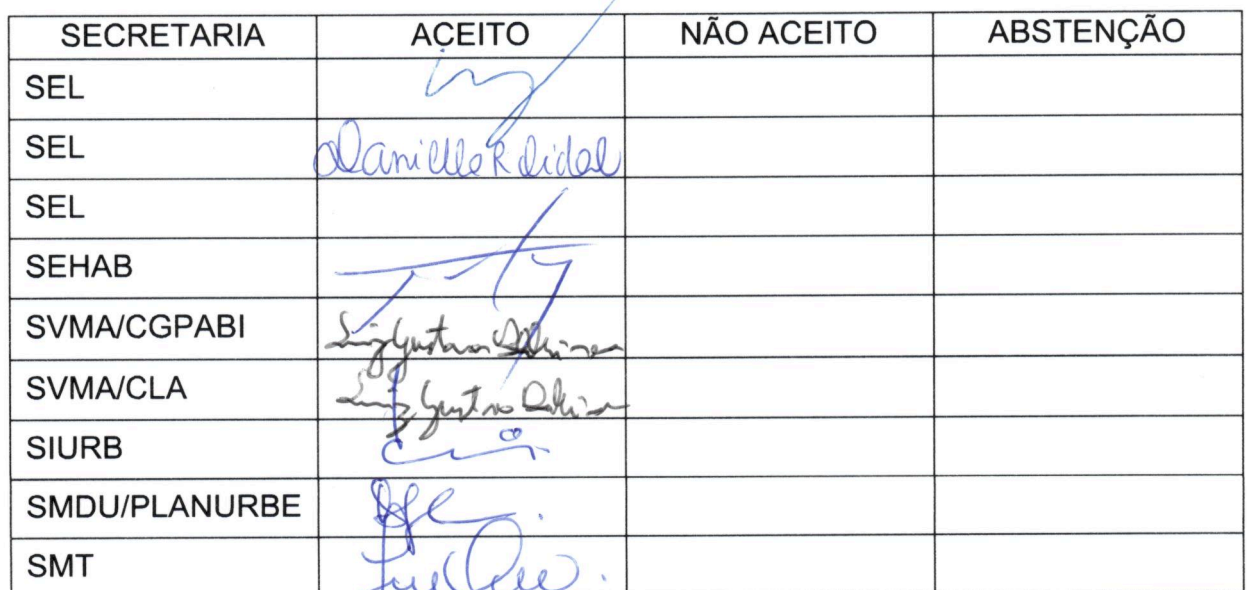 SECRETARIA ACEITO NÃO ACEITO ABSTENÇÃO
SEL
SEL Danielle R
SEL
SEHAB
SVMA/CGPABI Luiz Gustavo
SVMA/CLA Luiz Gustavo
SIURB
SMDU/PLANURBE
SMT